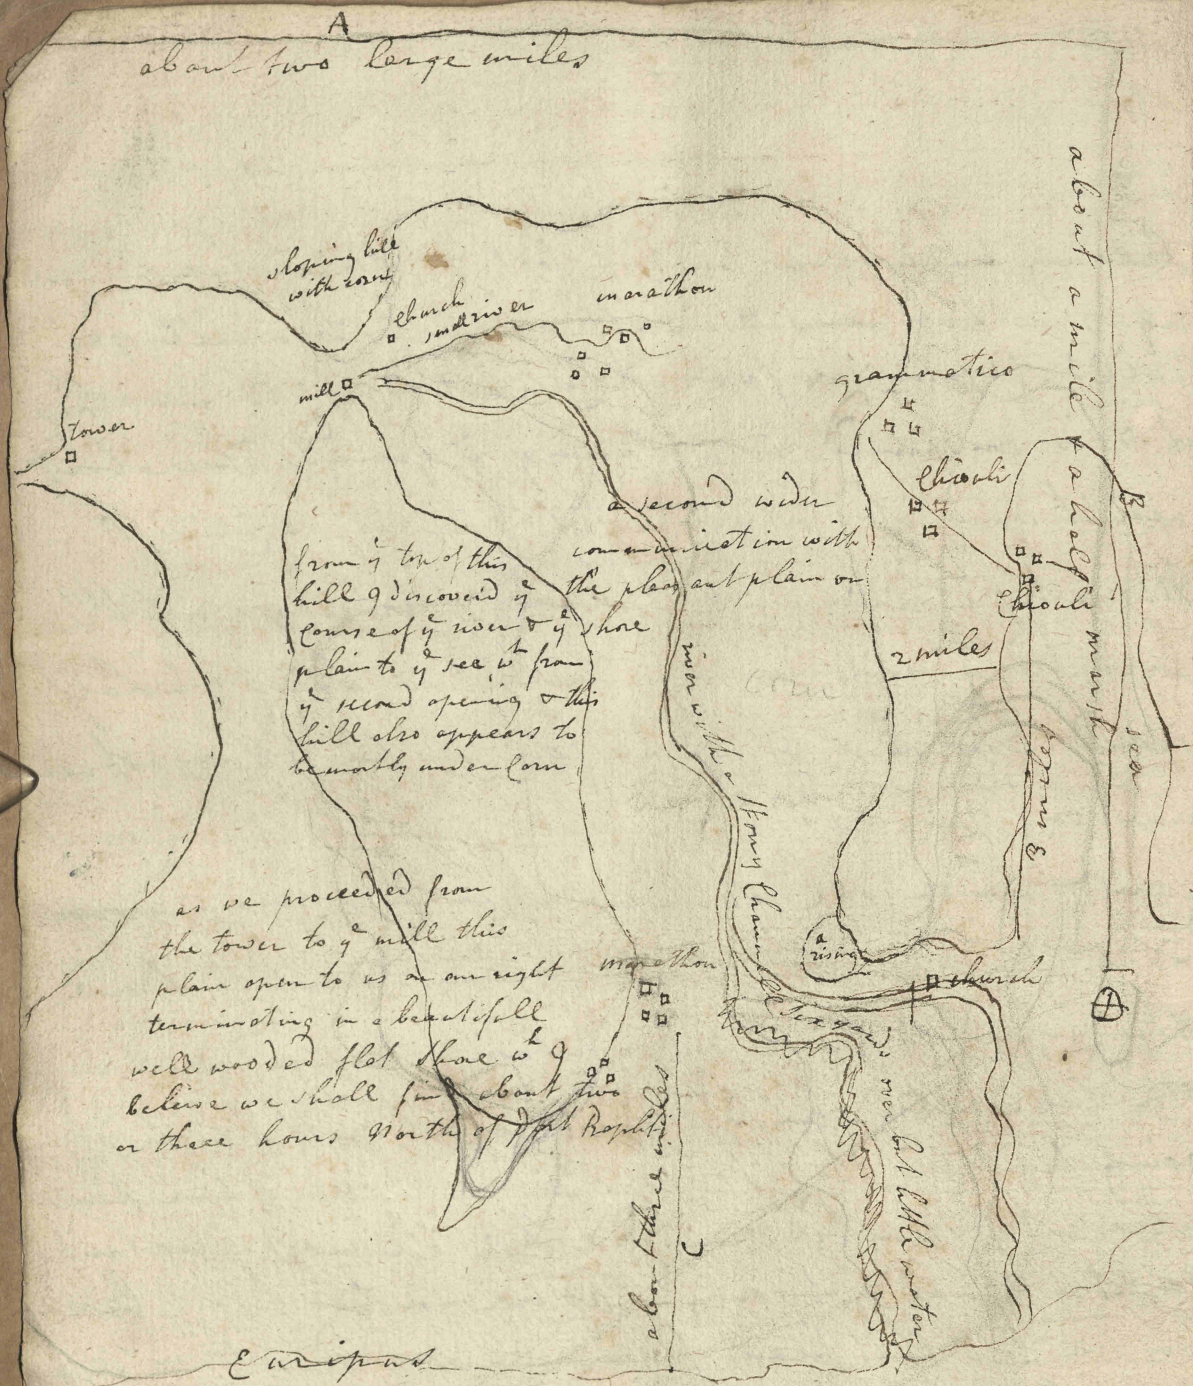 A
about two large miles
about a mile & a half marsh
sloping hill
with corn
Church
small river
marathon
mill
tower
grammatico
Chiouli
B
Chiouli
a second wider
communication with
the pleasant plain or
from ye top of this
hill I discoverd ye
Course of ye river & ye shore
plain to ye see wh from
ye second opening & this
hill also appears to
be mostly under Corn
2 miles
corn
river with a Stony Channel
sea
E
a
rising
church
as we proceeded from
the tower to ye mill this
plain open to us on our right
terminating in a beautifull
well wooded flat shore wh I
beleive we shall find about two
or three hours North of Port Raphti
marathon
about three miles
C
river but little water
Euripus